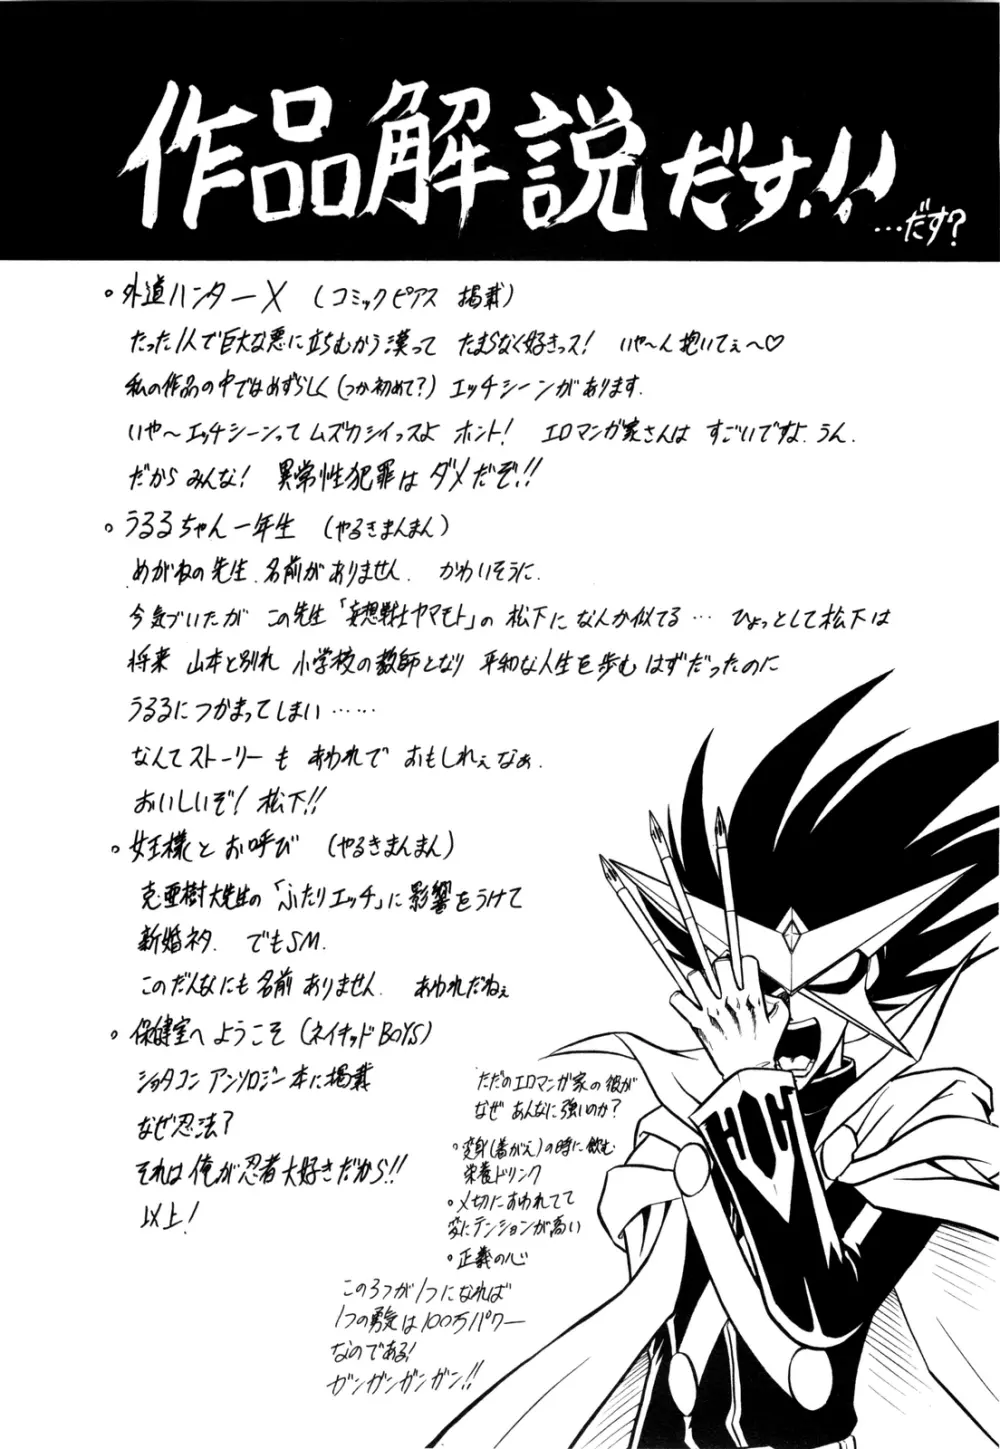 作品解説だす!!
…だす?
。外道ハンターX （コミックピアス 掲載）
たった1人で巨大な悪に立ちむかう漢って たまらなく好きっス! いや〜ん抱いてぇ〜♡
私の作品の中ではめずらしく（つか初めて?）エッチシーンがあります.
いや〜エッチシーンって ムズカシイっスよ ホント! エロマンガ家さんは すごいですよ.うん.
だから みんな! 異常性犯罪は ダメだぞ!!
。うるるちゃん一年生 （やるきまんまん）
めがねの先生.名前がありません. かわいそうに.
今気づいたが この先生「妄想戦士ヤマモト」の 松下に なんか似てる… ひょっとして松下は
将来 山本と別れ 小学校の教師となり 平和な人生を歩む はずだったのに
うるるに つかまってしまい……
なんてストーリーも あわれで おもしれぇなぁ.
おいしいぞ! 松下!!
。女王様とお呼び （やるきまんまん）
克・亜樹大先生の「ふたりエッチ」に影響をうけて
新婚ネタ. でもSM.
このだんなにも 名前 ありません. あわれだねぇ
。保健室へ ようこそ （ネイキッドBOYS）
ショタコン アンソロジー本に掲載
なぜ忍法?
それは 俺が忍者大好きだから!!
以上!
ただのエロマンガ家の彼が
なぜ あんなに強いのか?
。変身（着がえ）の時に飲む
栄養ドリンク
。〆切におわれてて
変にテンションが高い
。正義の心
この3つが1つになれば
1つの勇気は100万パワー
なのである!
ガンガンガンガン!!
H
H